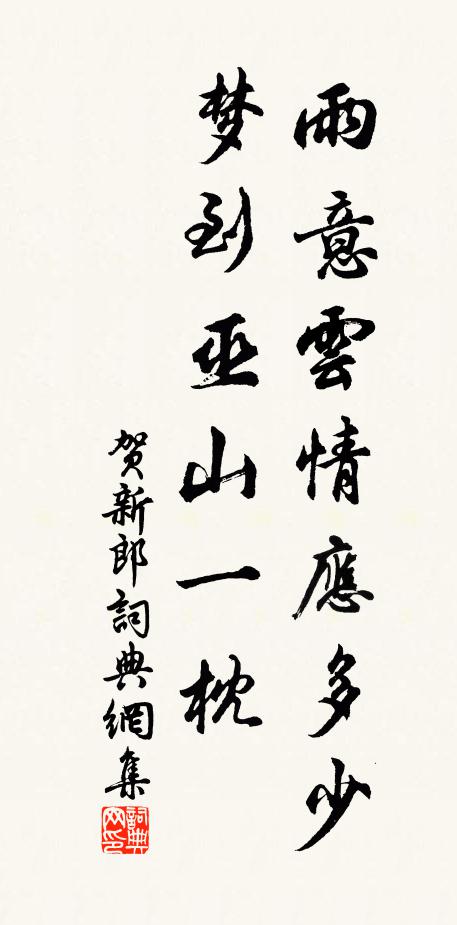 雨意雲情應多少
梦到巫山一枕
贺新郎詞典網集
詞典
网印